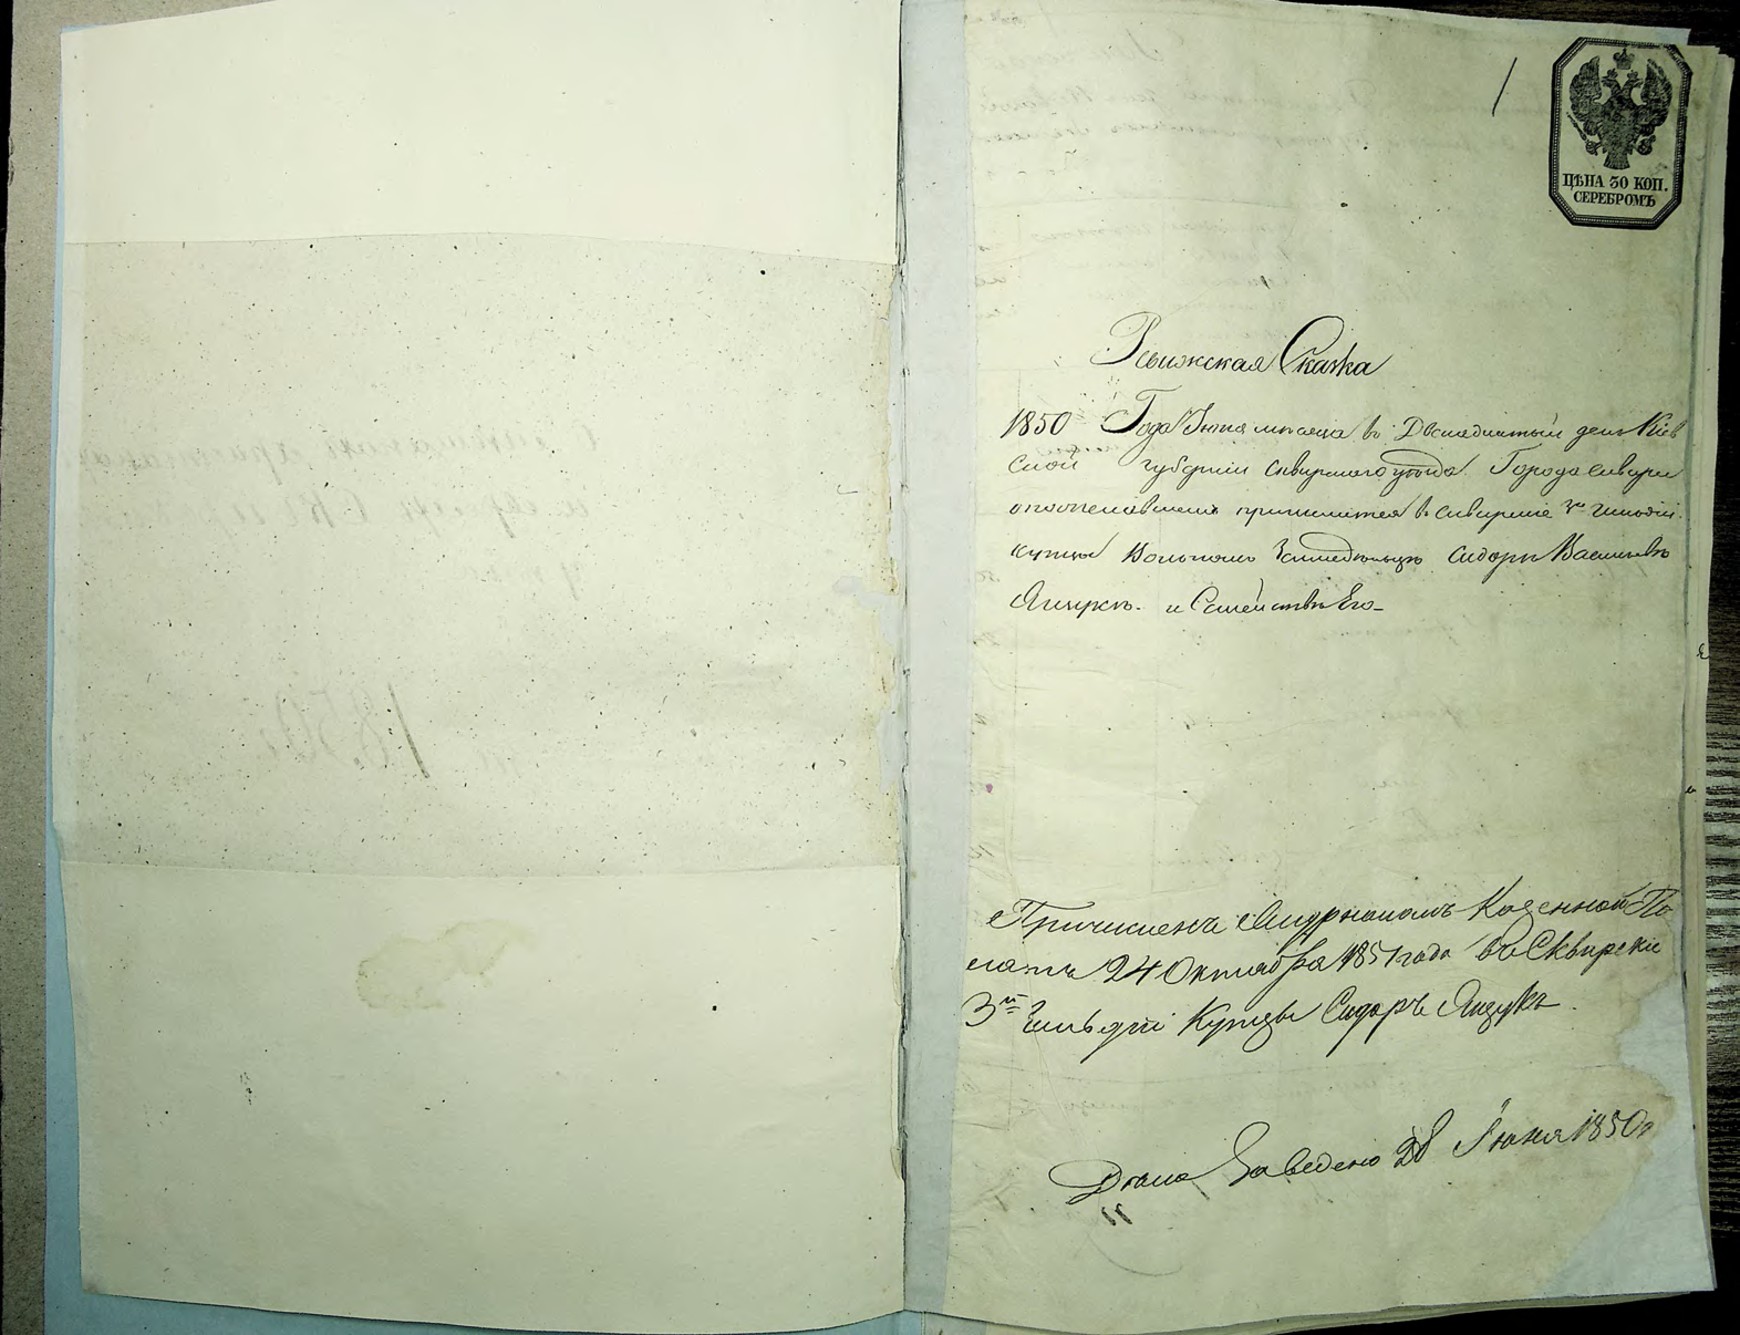 1
ЦѢНА 30 КОП.
СЕРЕБРОМЪ
Ревижская Сказка
1850 Года Іюня месяца въ Двенадцатый день Кіев
ской губерніи Сквирскаго уезда Города Сквири
о поступившемъ въ Сквирские 3й гильдіи
купцы Вольномъ Сидоре Васильеве
Ящуке. и Семействе Его
Причисленъ Казенной Па
латы 24 Октября 1851 года въ Сквирские
3й гильдіи Купцы Сидоръ Ящукъ.
Дело Заведено 28 Іюня 1850 г